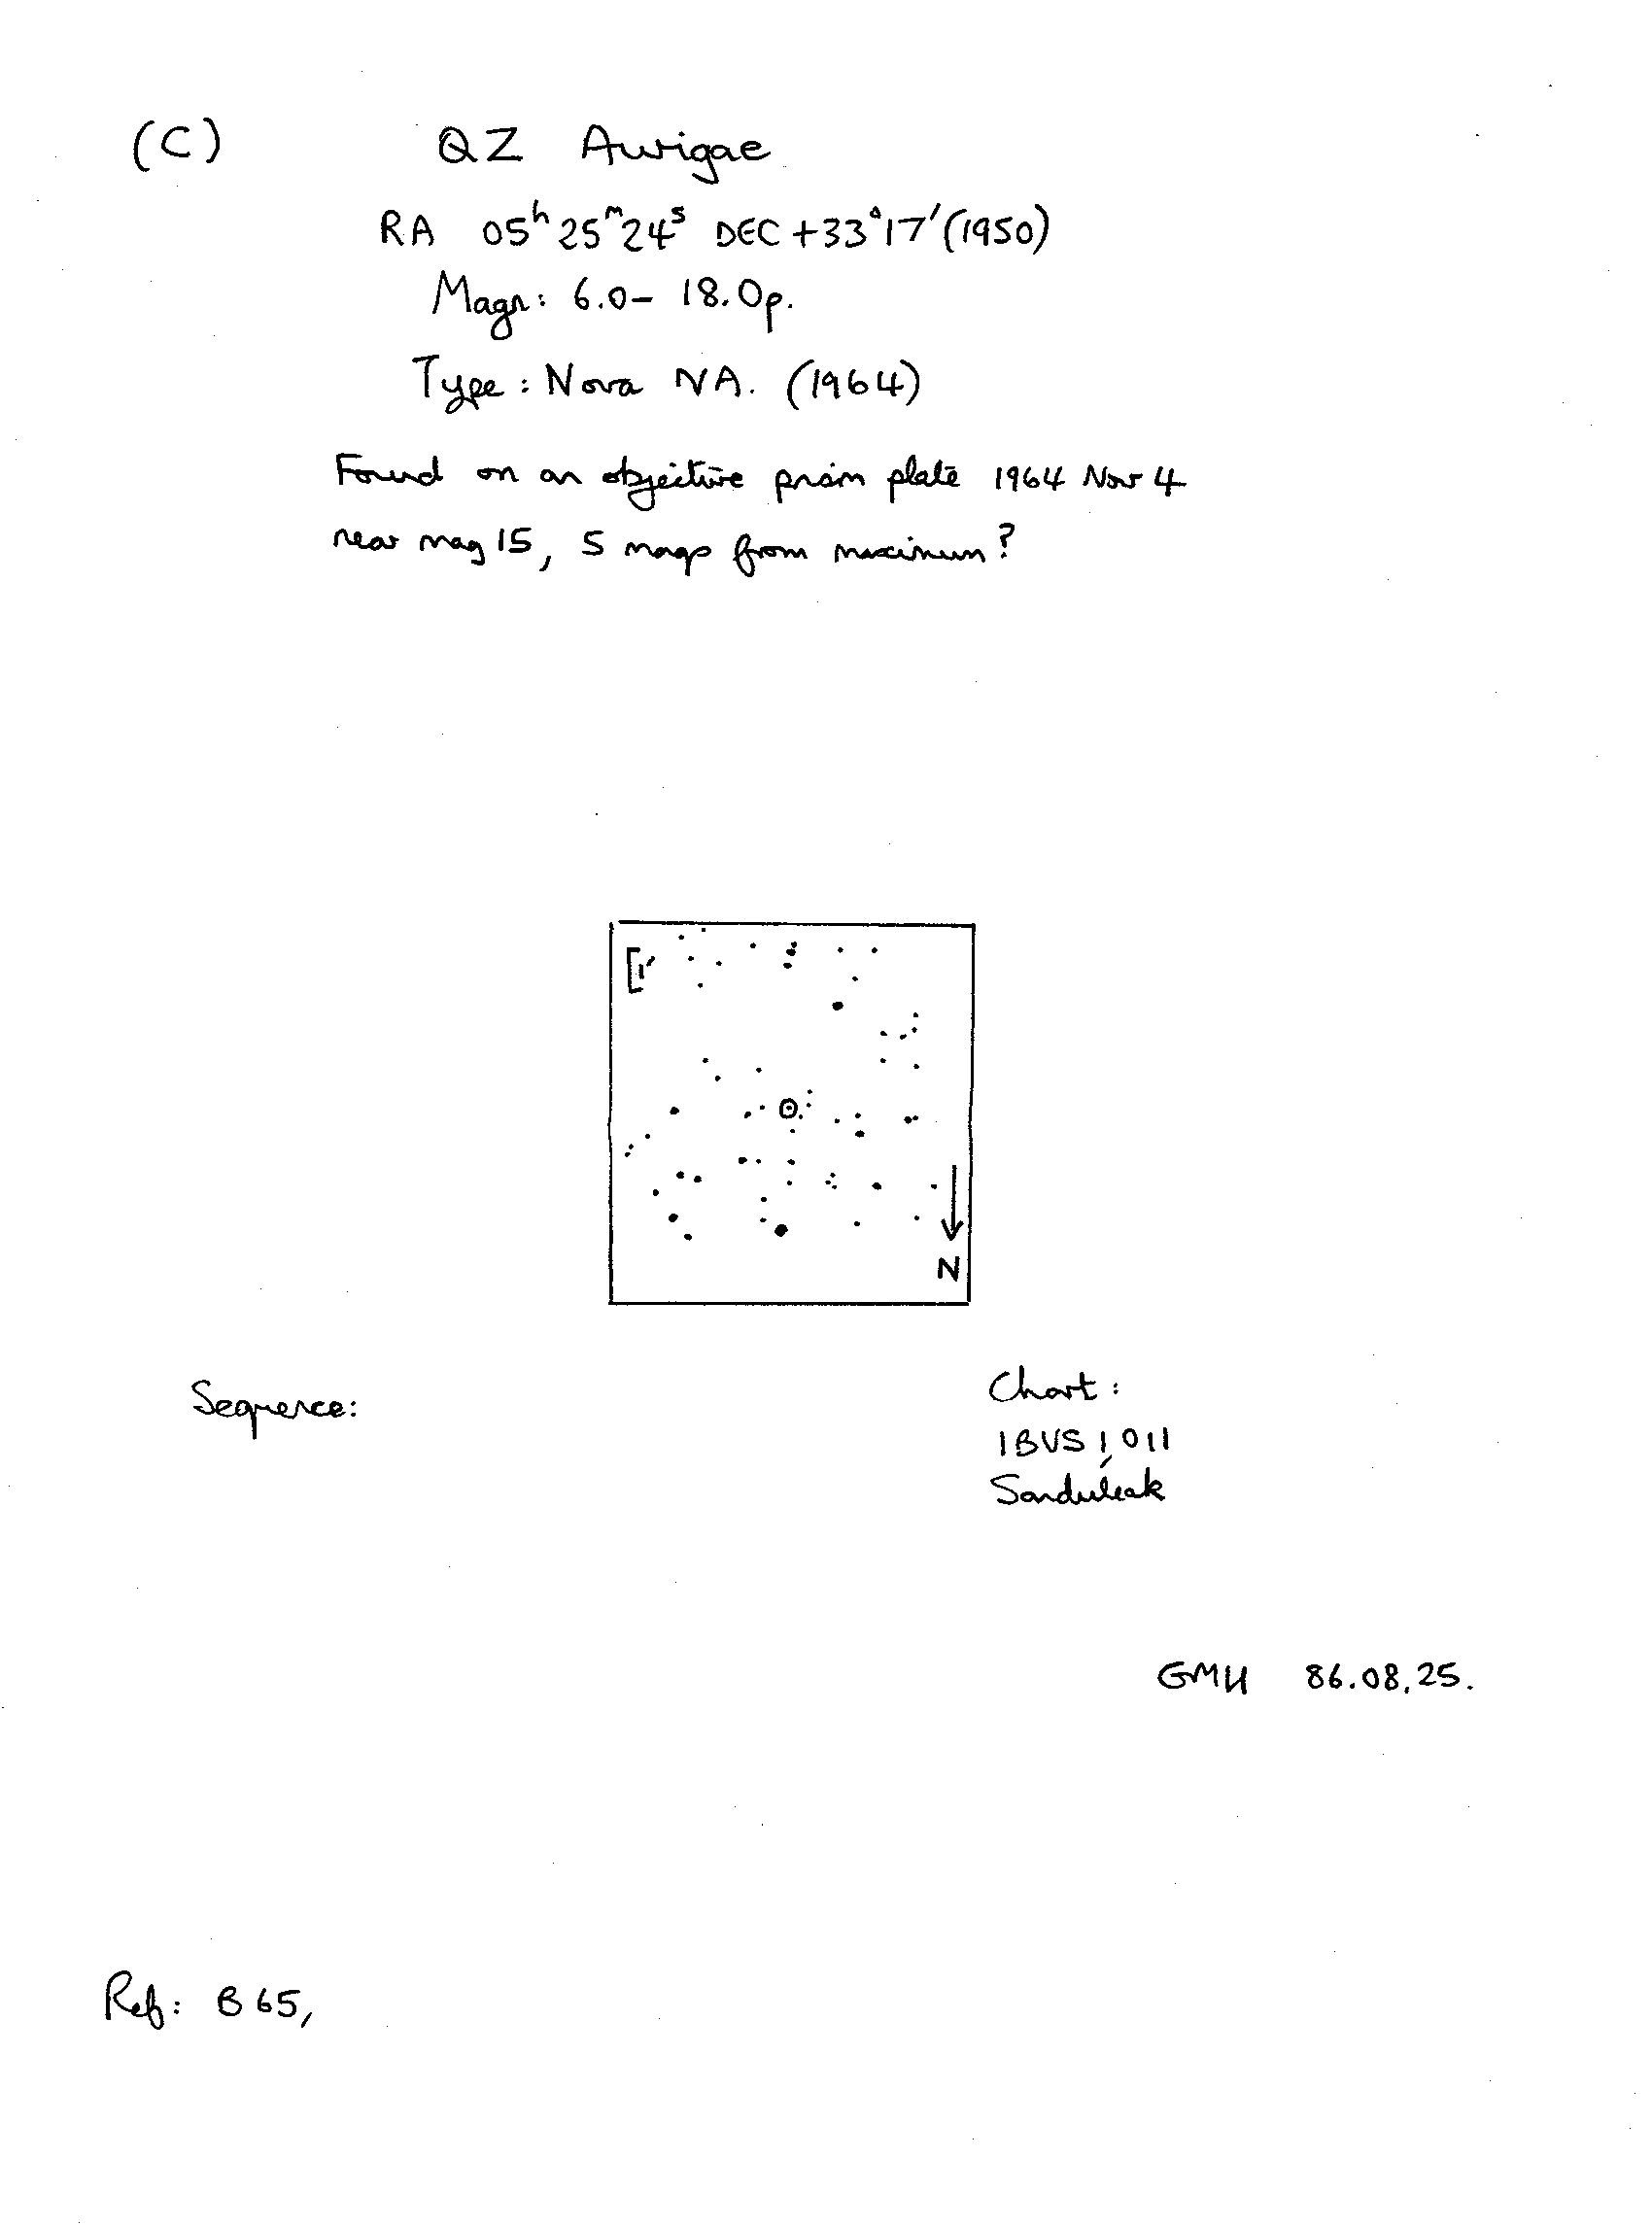 (C) QZ Aurigae
RA 05ʰ25ᵐ24ˢ DEC +33°17′ (1950)
Magn: 6.0 – 18.0p.
Type: Nova NA. (1964)
Found on an objective prism plate 1964 Nov 4
near mag 15, 5 mags from maximum?
[1′
N
Sequence:
Chart:
IBVS 1,011
Sanduleak
GMH 86.08.25.
Ref: B65,